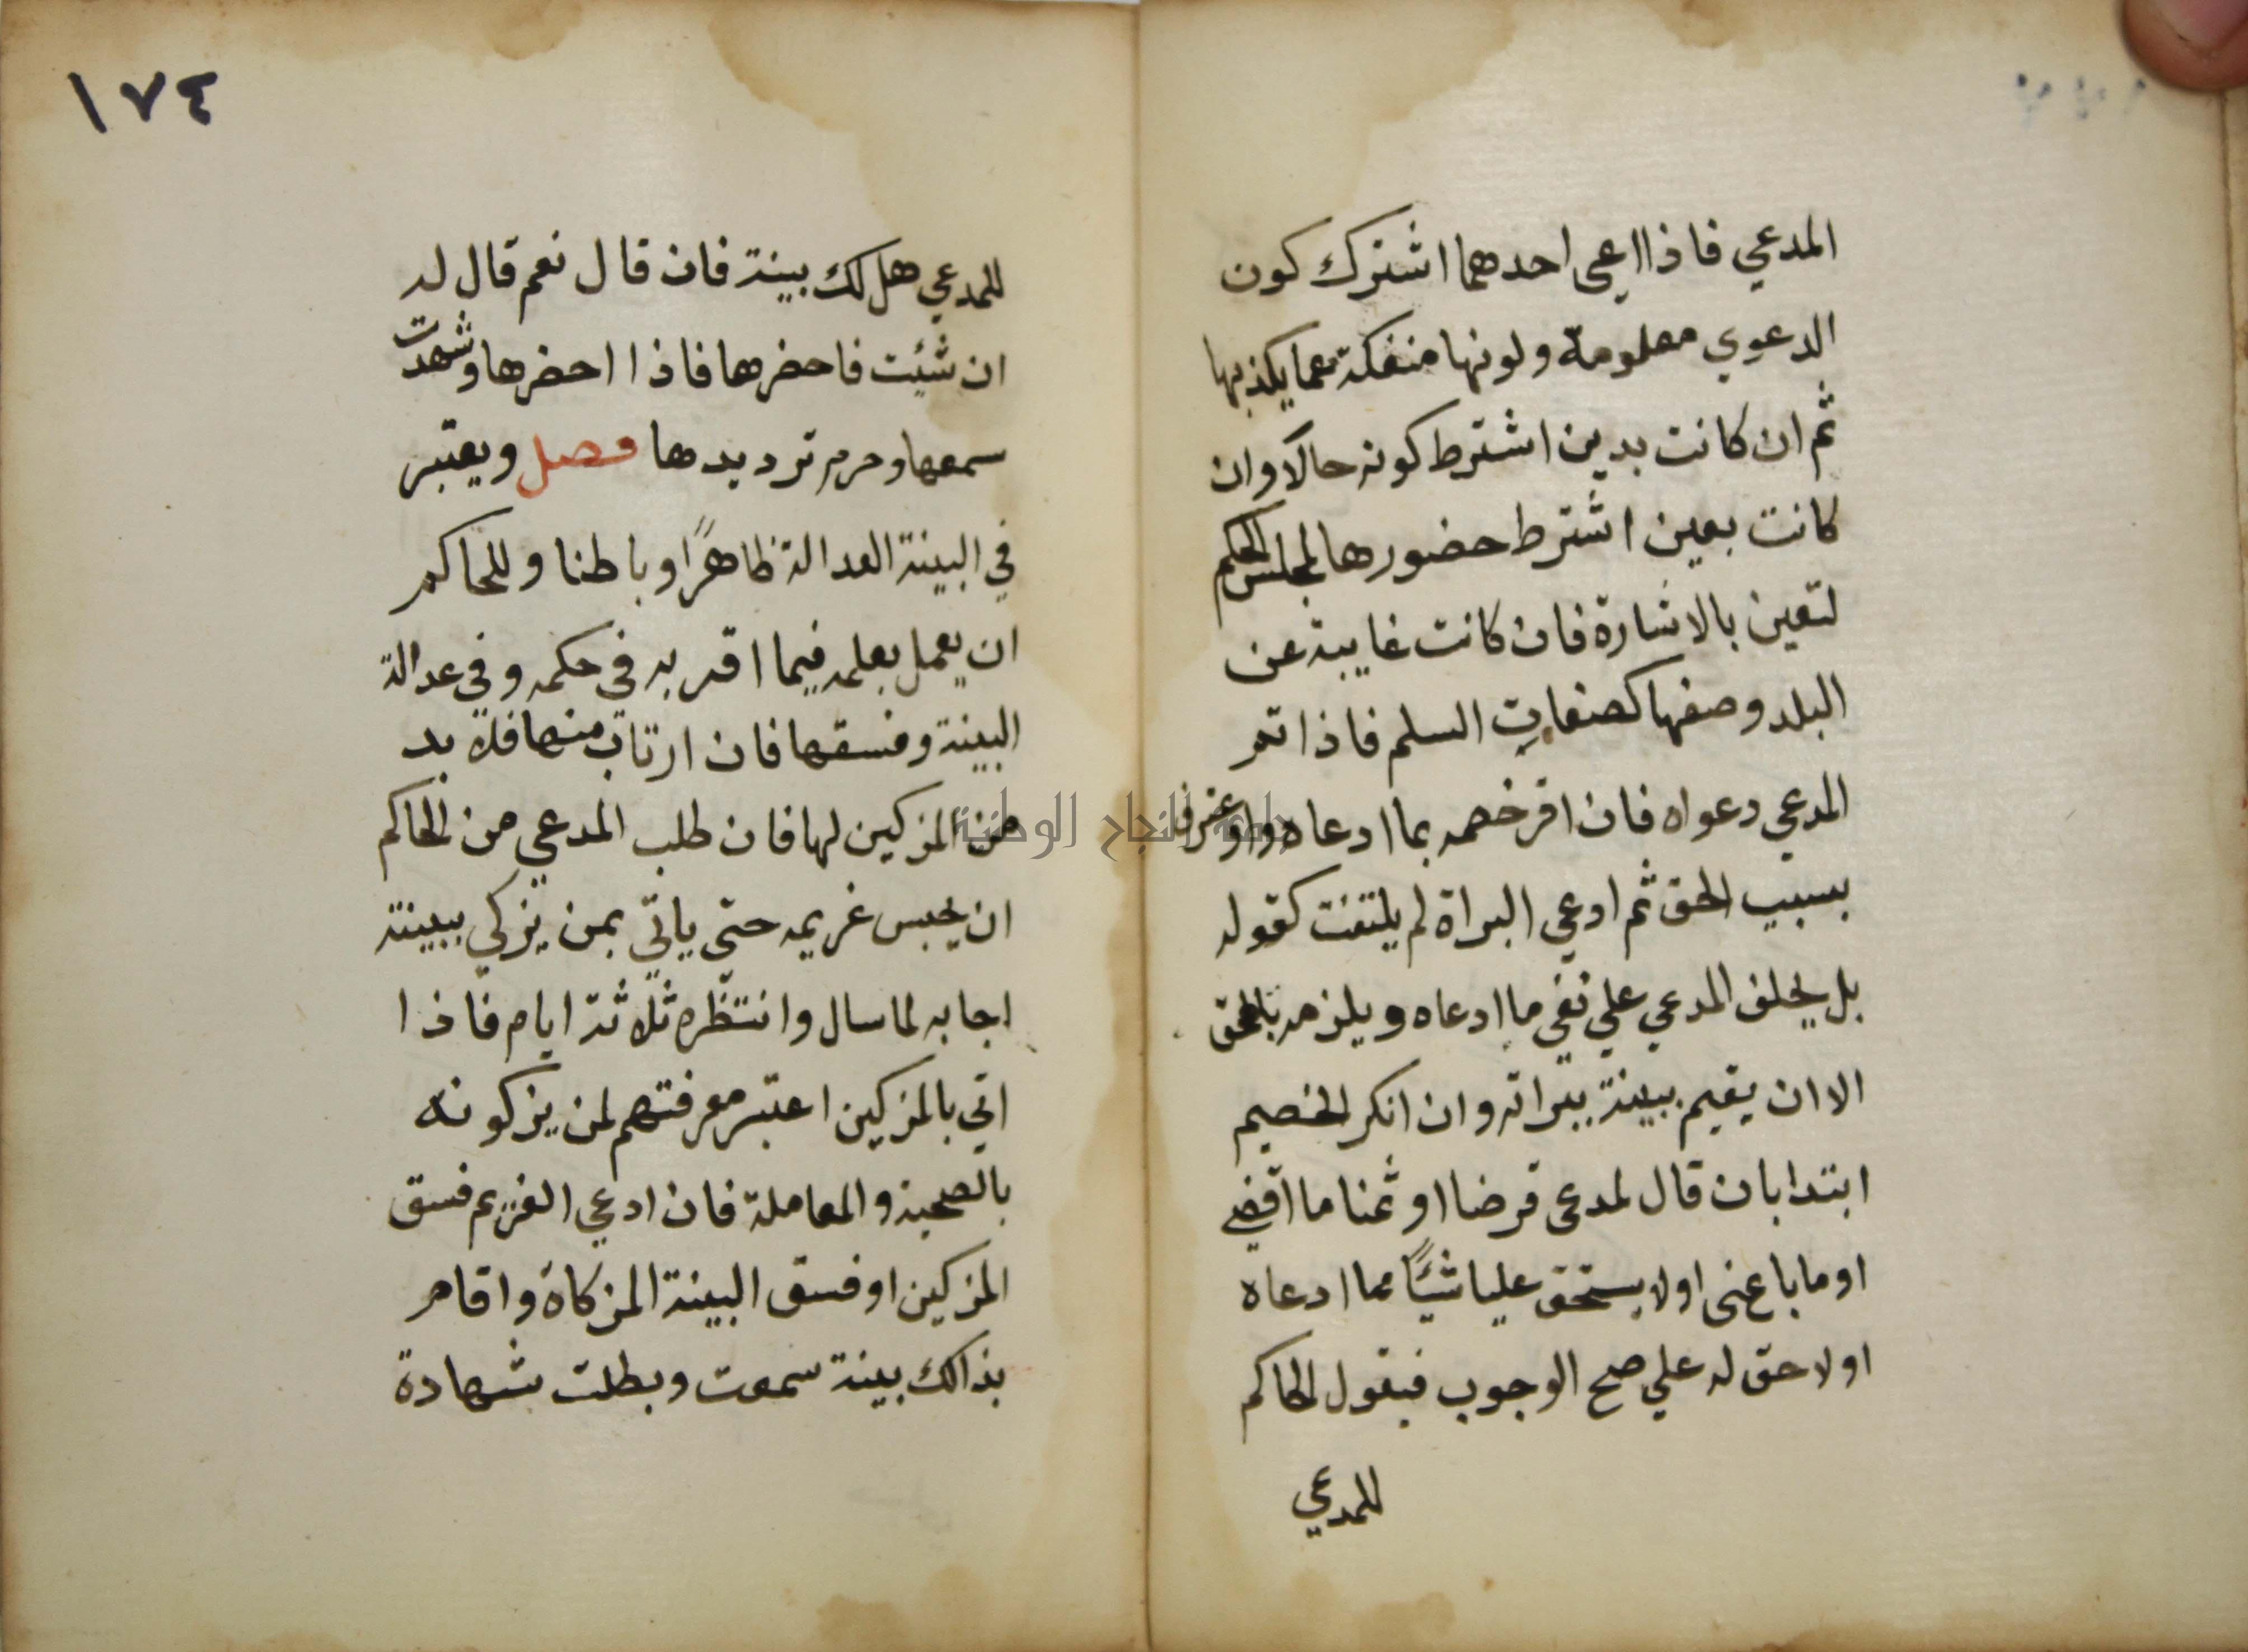 المدعي فاذا ادعى احدهما اشترك كون
الدعوي معلومة ولونها منفكة عما يكذبها
ثم ان كانت بدين اشترط كونه حالا وان
كانت بعين اشترط حضورها لمجلس الحكم
لتعين بالاشارة فان كانت غايبة عن
البلد وصفها كصفات السلم فاذا تم
المدعي دعواه فان اقر خصمه بما ادعاه او اعترف
بسبب الحق ثم ادعي البراة لم يلتفت كقوله
بل يحلف المدعي علي نفي ما ادعاه ويلزمه بالحق
الا ان يقيم بينة ببراته وان انكر الخصيم
ابتدا بان قال لمدعى قرضا او ثمنا ما اقضي
او ما باعنى او لا يستحق عليا شيًا مما ادعاه
او لا حق له علي صح الوجوب فيقول الحاكم
للمدعي
١٧٤
للمدعي هل لك بينة فان قال نعم قال له
ان شئت فاحضرها فاذا احضرها وشهدت
سمعها وحرم ترديدها فصل ويعتبر
في البينة العدالة ظاهرًا وباطنا وللحاكم
ان يعمل بعلمه فيما اقر به في حكمه وفي عدالة
البينة وفسقها فان ارتاب منها فلا بد
من المزكين لها فان طلب المدعي من الحاكم
ان يحبس غريمه حتي ياتي بمن يزكي ببينته
اجابه لما سال وانتظره ثلاثة ايام فاذا
اتي بالمزكين اعتبر معرفتهم لمن يزكونه
بالصحبة والمعاملة فان ادعي الغريم فسق
المزكين او فسق البينة المزكاة واقام
بذالك بينة سمعت وبطلت شهادة
جامعة النجاح الوطنية